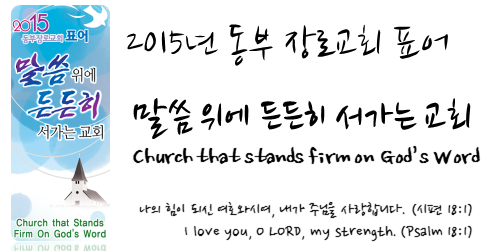 2015
동부장로교회 표어
말씀 위에
든든히
서가는 교회
Church that Stands
Firm On God's Word
2015년 동부 장로교회 표어
말씀 위에 든든히 서가는 교회
Church that stands firm on God's Word
나의 힘이 되신 여호와시여, 내가 주님을 사랑합니다. (시편 18:1)
I love you, O LORD, my strength. (Psalm 18:1)